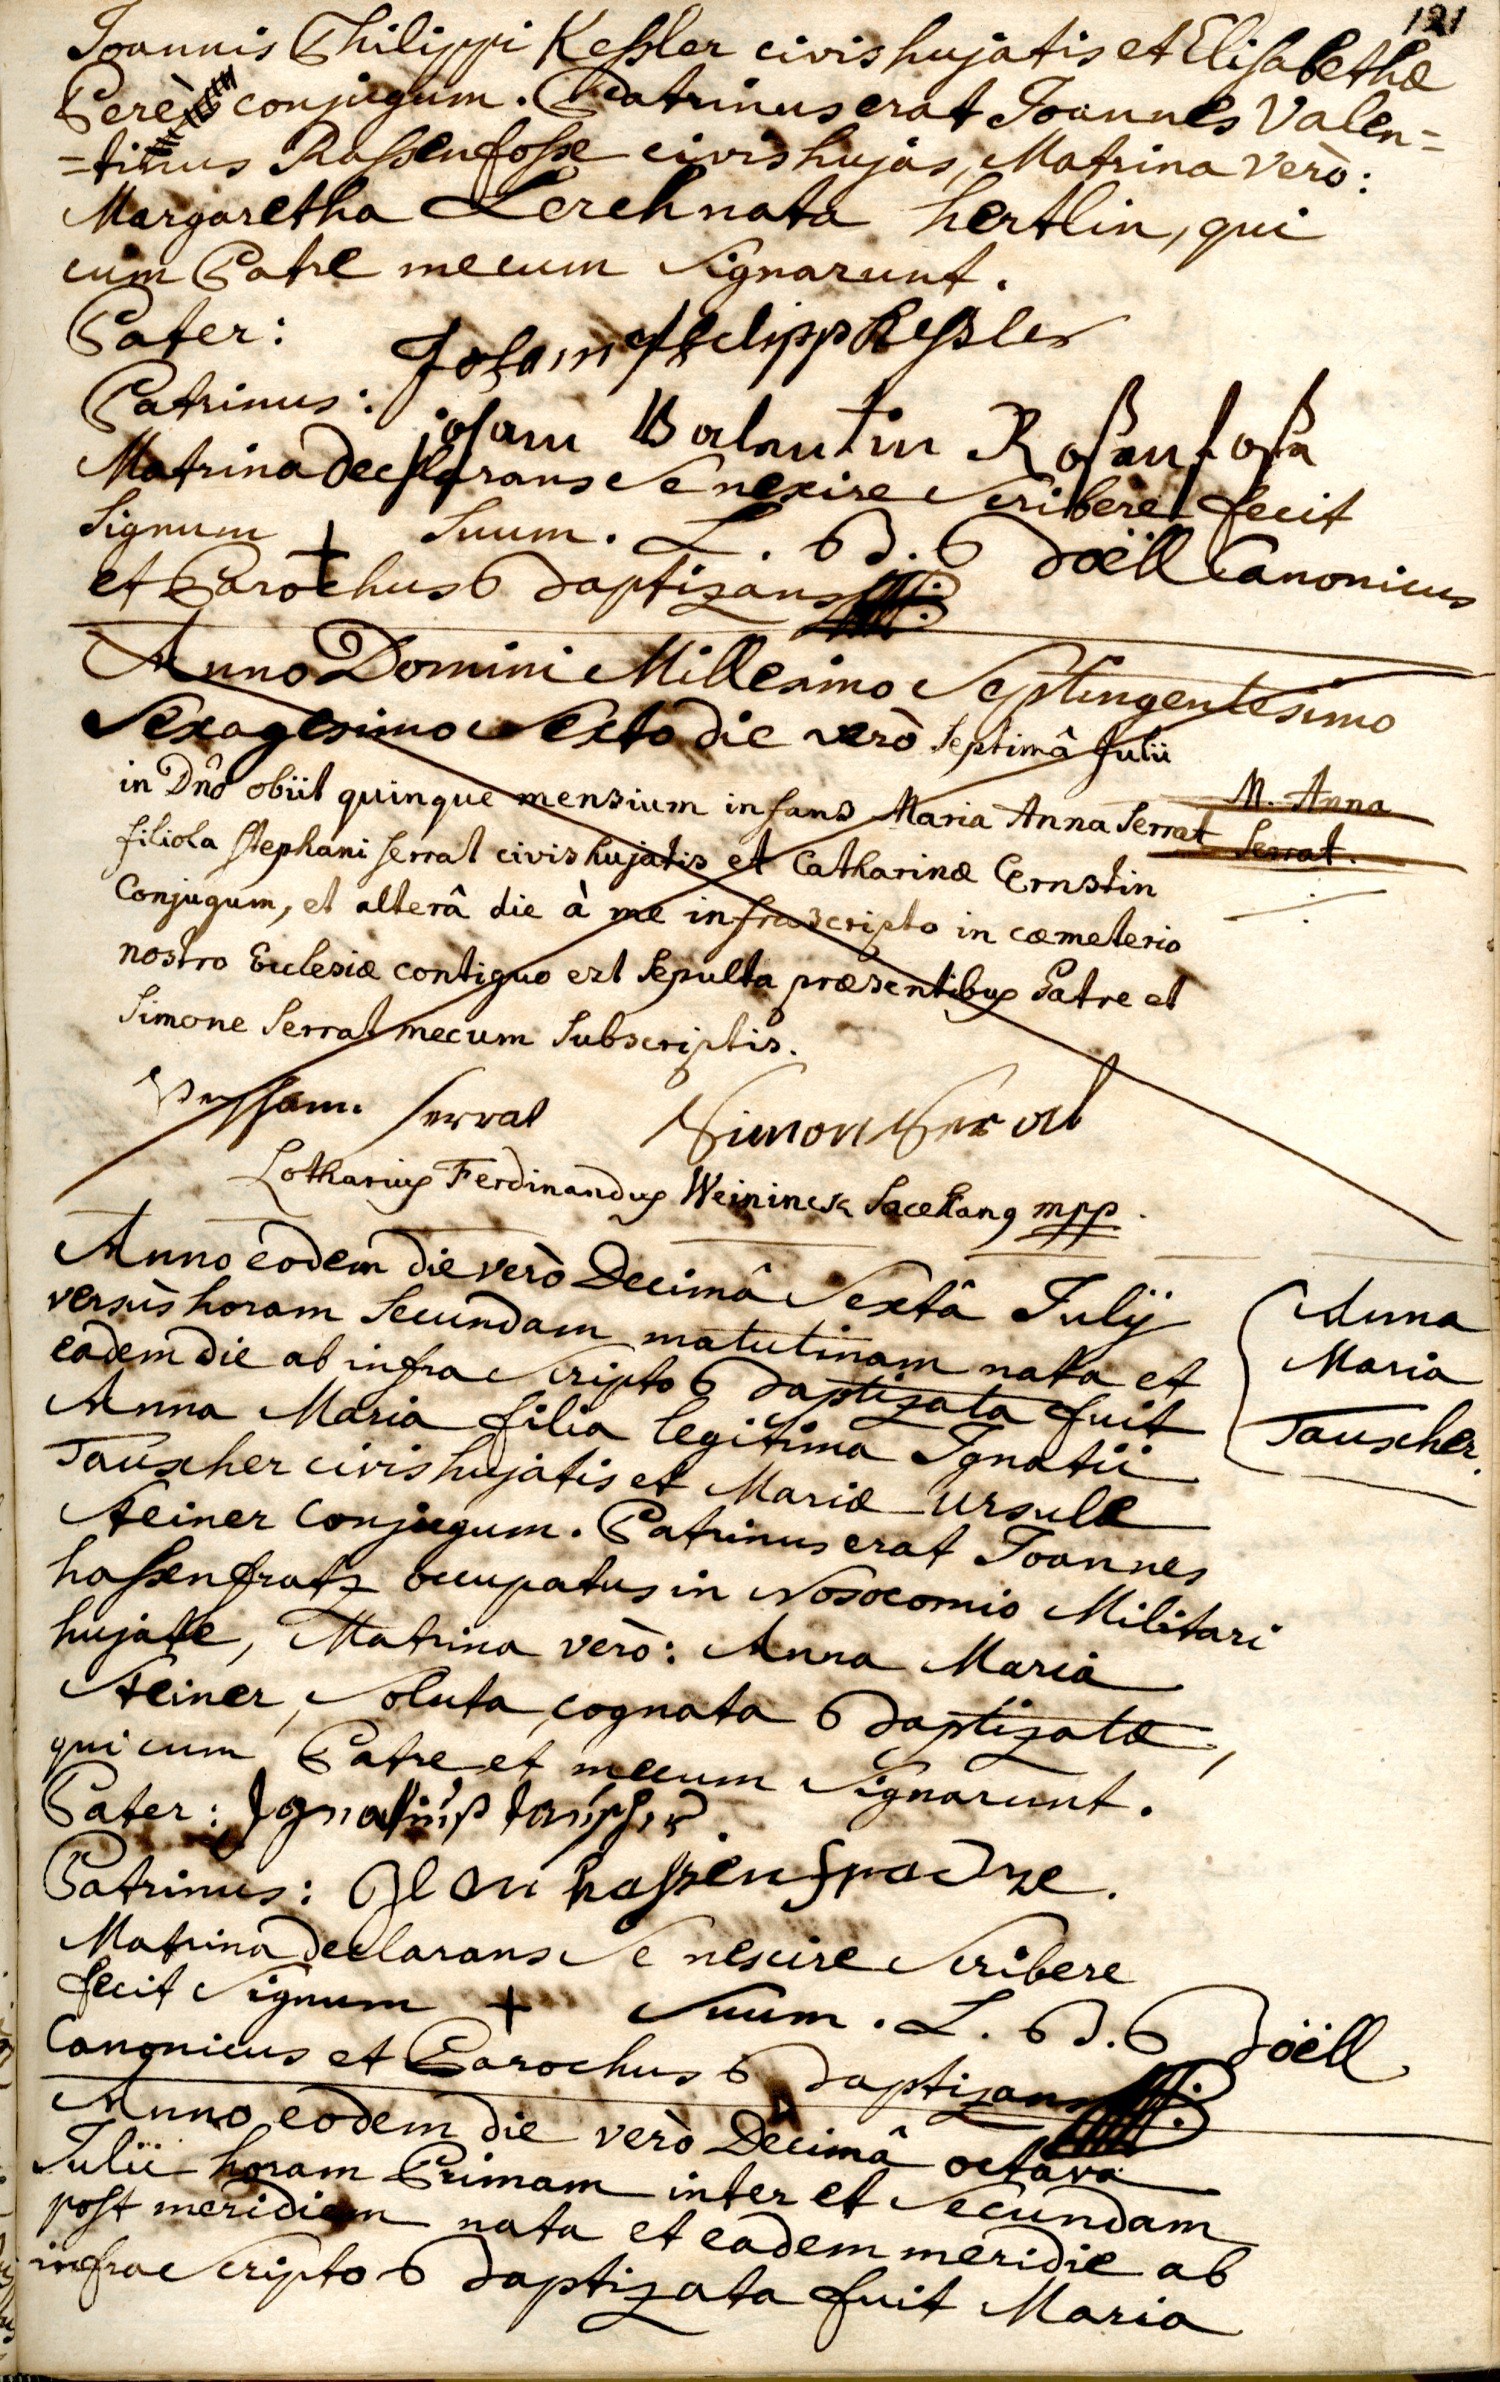 121
Joannis Philippi Keßler civis hujatis et Elisabethæ
Pereis conjugum. Patrinus erat Joannes Valen=
=tinus Raßenfosse civis hujas, Matrina verò:
Margaretha Lerch nata hertlin, qui
cum Patre mecum signarunt.
Pater: Johann Philipp Keßler
Patrinus: johann Valentin Roßenfoßa
Matrina declarans se nescire scribere fecit
signum + suum. L. B. Boëll Canonicus
et Parochus Baptizans
Anno Domini Millesimo Septingentesimo
Sexagesimo Sexto die verò septimâ Julii
in Dño obiit quinque mensium infans Maria Anna Serrat
filiola Stephani Serrat civis hujatis et Catharinæ Ernstin
Conjugum, et alterâ die à me infrascripto in cæmeterio
nostro Ecclesiæ contiguo est sepulta præsentibus Patre et
Simone Serrat mecum subscriptis.
M. Anna
Serrat.
serrat Simon Serat
Lotharius Ferdinandus Weininck Sacellanus mpp.
Anno eodem die verò Decimâ Sextâ Julij
versùs horam secundam matutinam nata et
eadem die ab infra scripto Baptizata fuit
Anna Maria filia legitima Ignatii
Tauscher civis hujatis et Mariæ Ursulæ
Steiner conjugum. Patrinus erat Joannes
haßenfratz occupatus in Nosocomio Militari
hujate, Matrina verò: Anna Maria
Steiner, soluta, cognata Baptizatæ,
qui cum Patre et mecum signarunt.
Anna
Maria
Tauscher.
Pater: Ignatius tauscher
Patrinus: haßenfradze.
Matrina declarans se nescire scribere
fecit signum + suum. L. B. Boëll
Canonicus et Parochus Baptizans
Anno eodem die verò Decimâ octava
Julii horam Primam inter et secundam
post meridiem nata et eadem meridie ab
infra scripto Baptizata fuit Maria